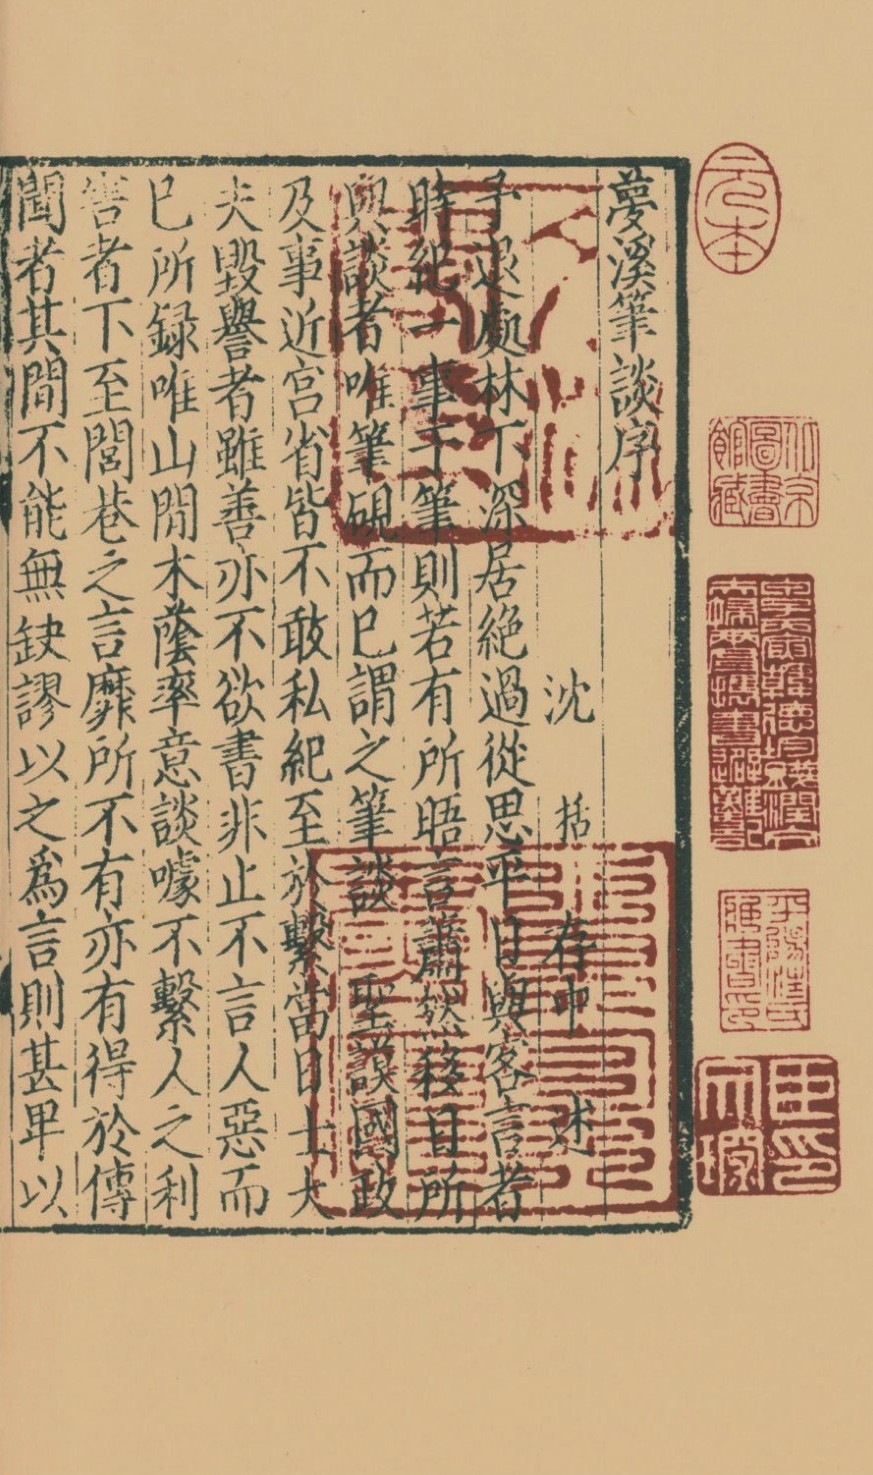 夢溪筆談序
沈括存中述
予退處林下深居絶過從思平日與客言者
時紀一事于筆則若有所晤言蕭然移日所
與談者唯筆硯而已謂之筆談聖謨國政
及事近宮省皆不敢私紀至於繫當日士大
夫毀譽者雖善亦不欲書非止不言人惡而
已所録唯山間木蔭率意談噱不繫人之利
害者下至閭巷之言靡所不有亦有得於傳
聞者其間不能無缺謬以之爲言則甚卑以
元本
北京圖書館藏
臣印文琛